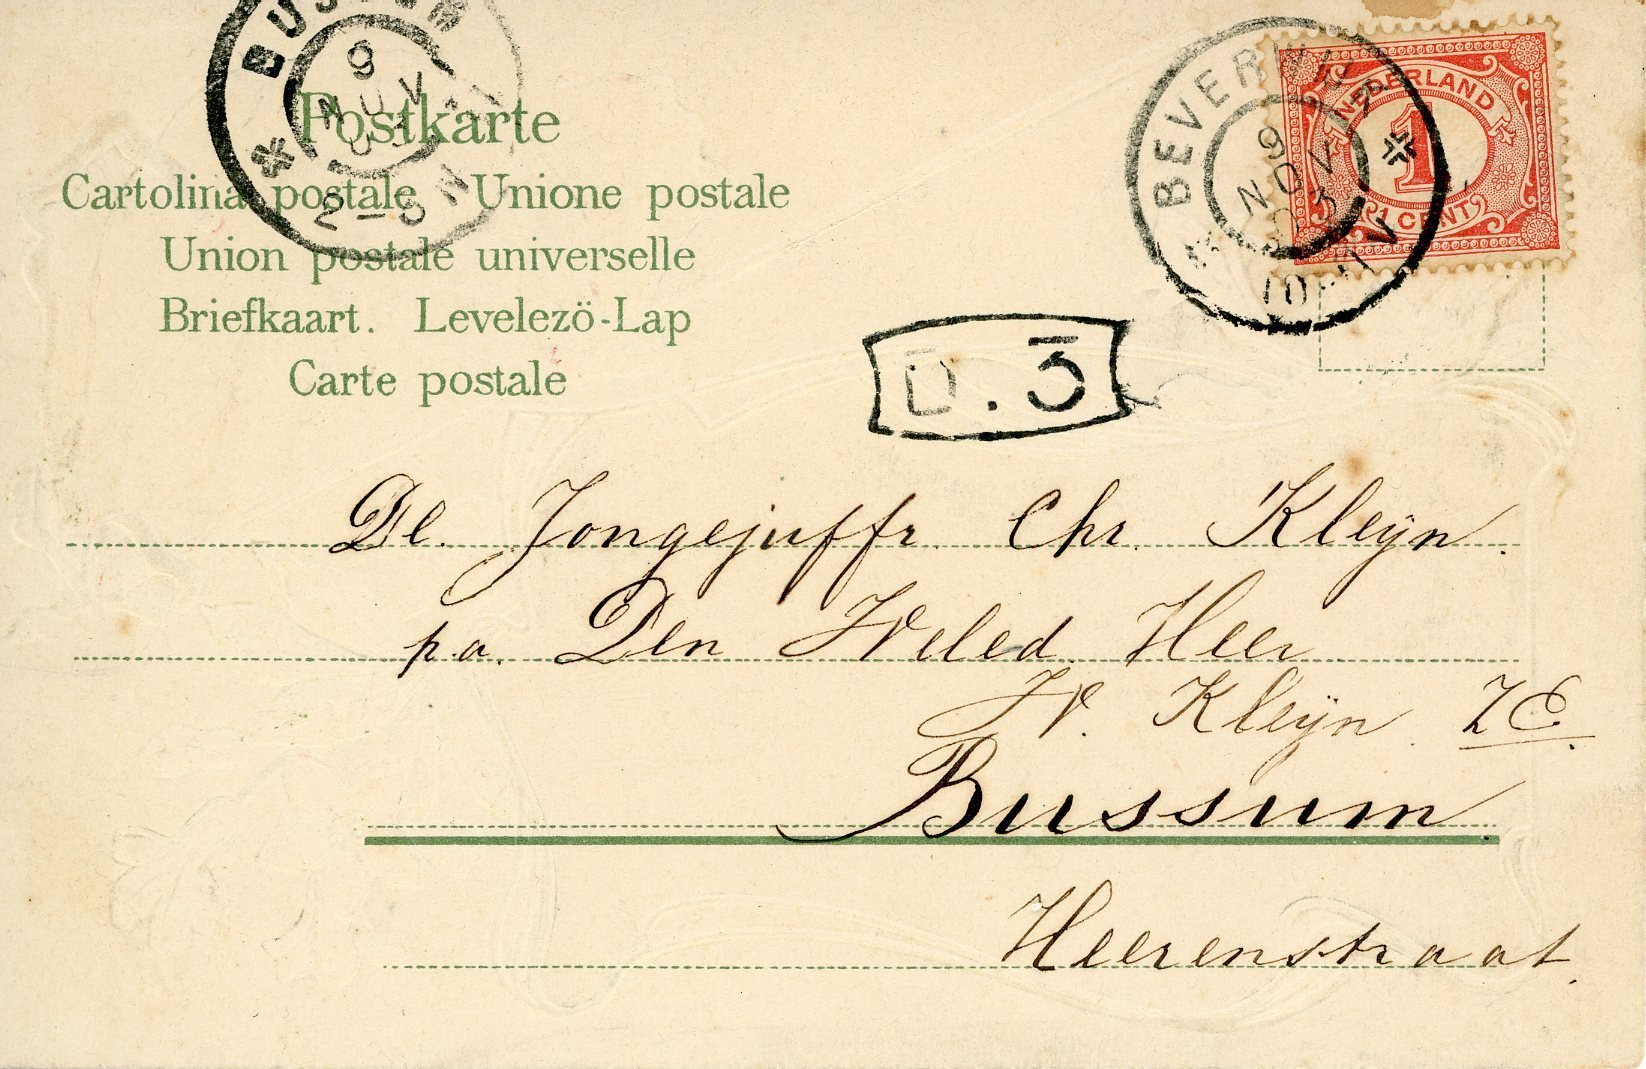 BUSSUM
9
NOV
03
2-5N
Postkarte
Cartolina postale Unione postale
Union postale universelle
Briefkaart. Levelezö-Lap
Carte postale
BEVERWIJK
9
NOV
03
NEDERLAND
1
1 CENT
D.3
De. Jongejuffr. Chr. Kleijn.
p.a. Den Weled. Heer
W. Kleijn. ZE.
Bussum.
Heerenstraat.